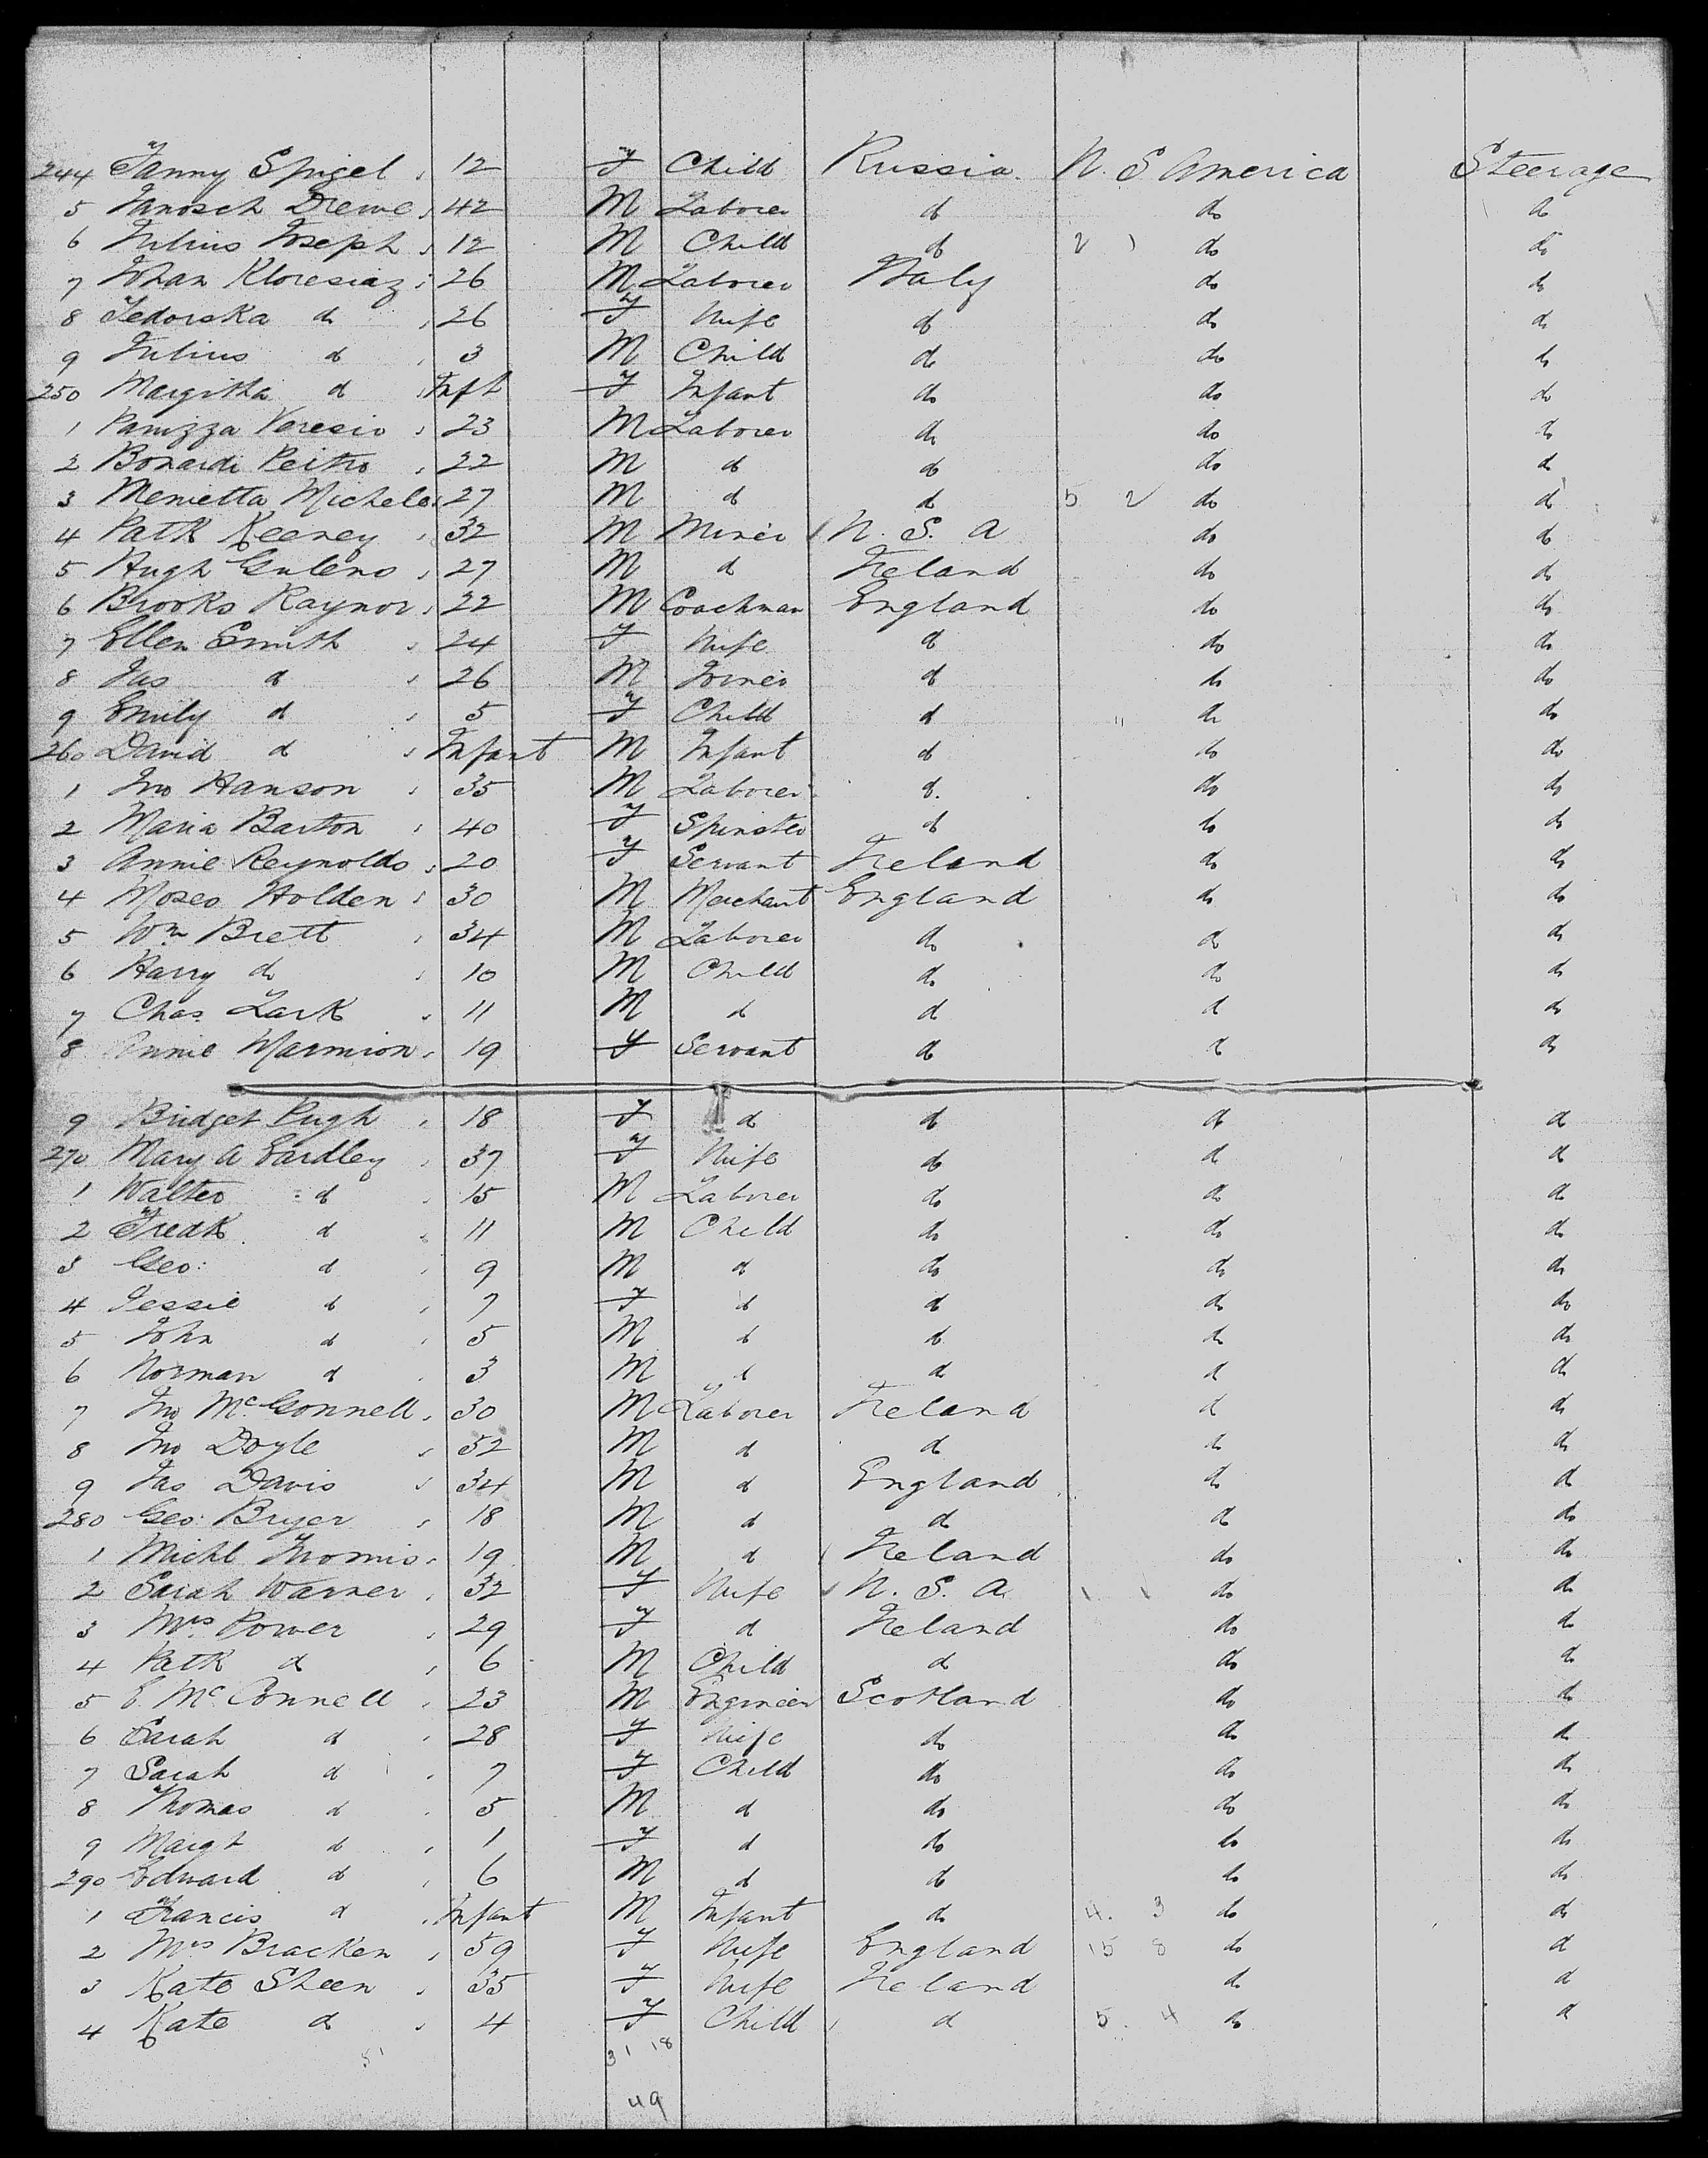 244 Fanny Spigel 12 F Child Russia U. S America Steerage
5 Janosch Dreme 42 M Laborer do do do
6 Julius Joseph 12 M Child do 2 1 do do
7 Johan Kloresiaz 26 M Laborer Italy do do
8 Fedorska do 26 F Wife do do do
9 Julius do 3 M Child do do do
250 Margitha do Inft F Infant do do do
1 Panizza Veresio 23 M Laborer do do do
2 Bonardi Peitro 22 M do do do do
3 Menietta Michele 27 M do do 5 2 do do
4 Patk Keeney 32 M Miner U. S. A do do
5 Hugh Guleno 27 M do Ireland do do
6 Brooks Raynor 22 M Coachman England do do
7 Ellen Smith 24 F Wife do do do
8 Jas do 26 M Joiner do do do
9 Emily do 5 F Child do " do do
260 David do Infant M Infant do do do
1 Jno Hanson 35 M Laborer do do do
2 Maria Barton 40 F Spinster do do do
3 Annie Reynolds 20 F Servant Ireland do do
4 Moses Holden 30 M Merchant England do do
5 Wm Brett 34 M Laborer do do do
6 Harry do 10 M Child do do do
7 Chas. Lark 11 M do do do do
8 Annie Marmion 19 F Servant do do do
9 Bridget Pugh 18 F do do do do
270 Mary A Eardley 37 F Wife do do do
1 Walter do 15 M Laborer do do do
2 Fredk do 11 M Child do do do
3 Geo: do 9 M do do do do
4 Jessie do 7 F do do do do
5 John do 5 M do do do do
6 Norman do 3 M do do do do
7 Jno McGonnell 30 M Laborer Ireland do do
8 Jno Doyle 52 M do do do do
9 Jas Davis 34 M do England do do
280 Geo: Bryer 18 M do do do do
1 Michl Thomis 19 M do Ireland do do
2 Sarah Warner 32 F Wife U. S. A 1 1 do do
3 Mrs Power 29 F do Ireland do do
4 Patk do 6 M Child do do do
5 E. McConnell 23 M Engineer Scotland do do
6 Sarah do 28 F Wife do do do
7 Sarah do 7 F Child do do do
8 Thomas do 5 M do do do do
9 Margt do 1 F do do do do
290 Edward do 6 M do do do do
1 Francis do Infant M Infant do 4. 3 do do
2 Mrs Bracken 59 F Wife England 15 8 do do
3 Kate Sheen 35 F Wife Ireland do do
4 Kate do 4 F Child do 5. 4 do do
51 31 18
49